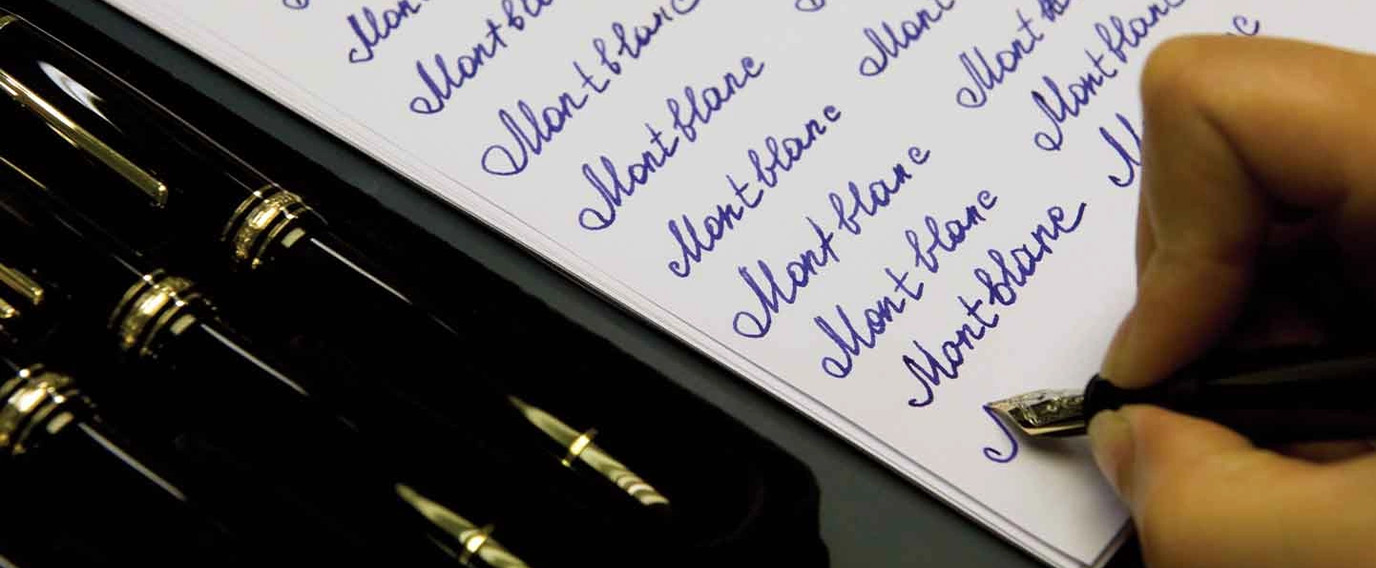 Mon
Montbla
Montblanc
Montblanc
Montblanc
Montblanc
Montblanc
Montblanc
Mont
Mont
Montblanc
M